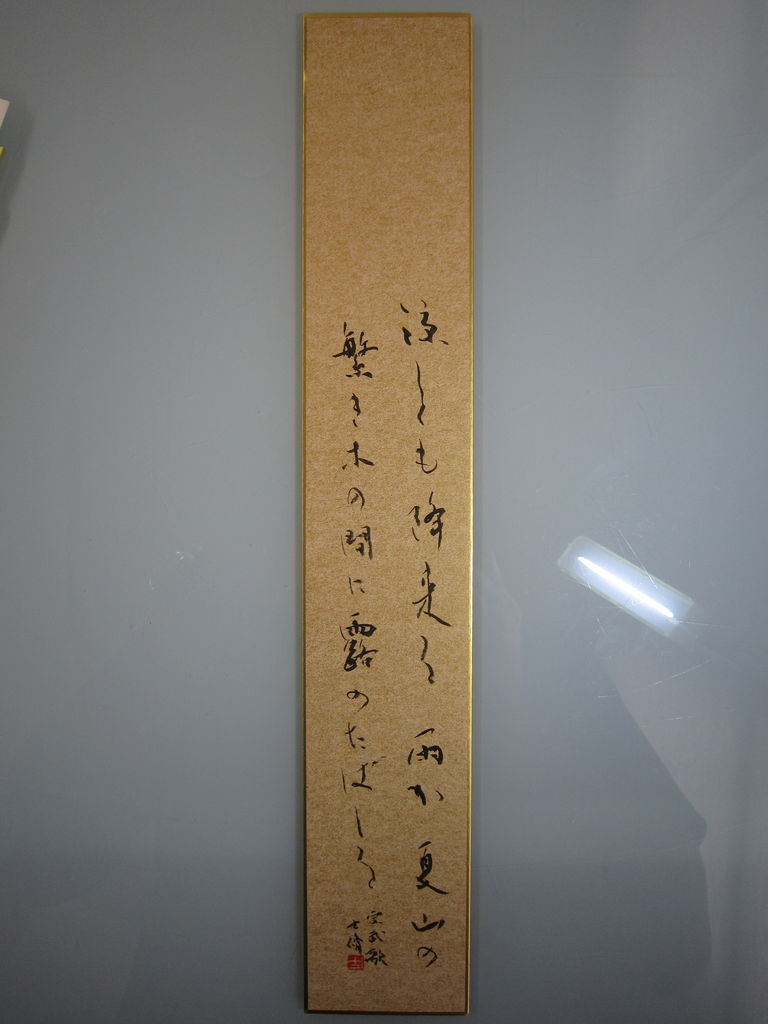 涼しくも降来る雨か夏山の
繁き木の間に露のたばしる
宗武歌